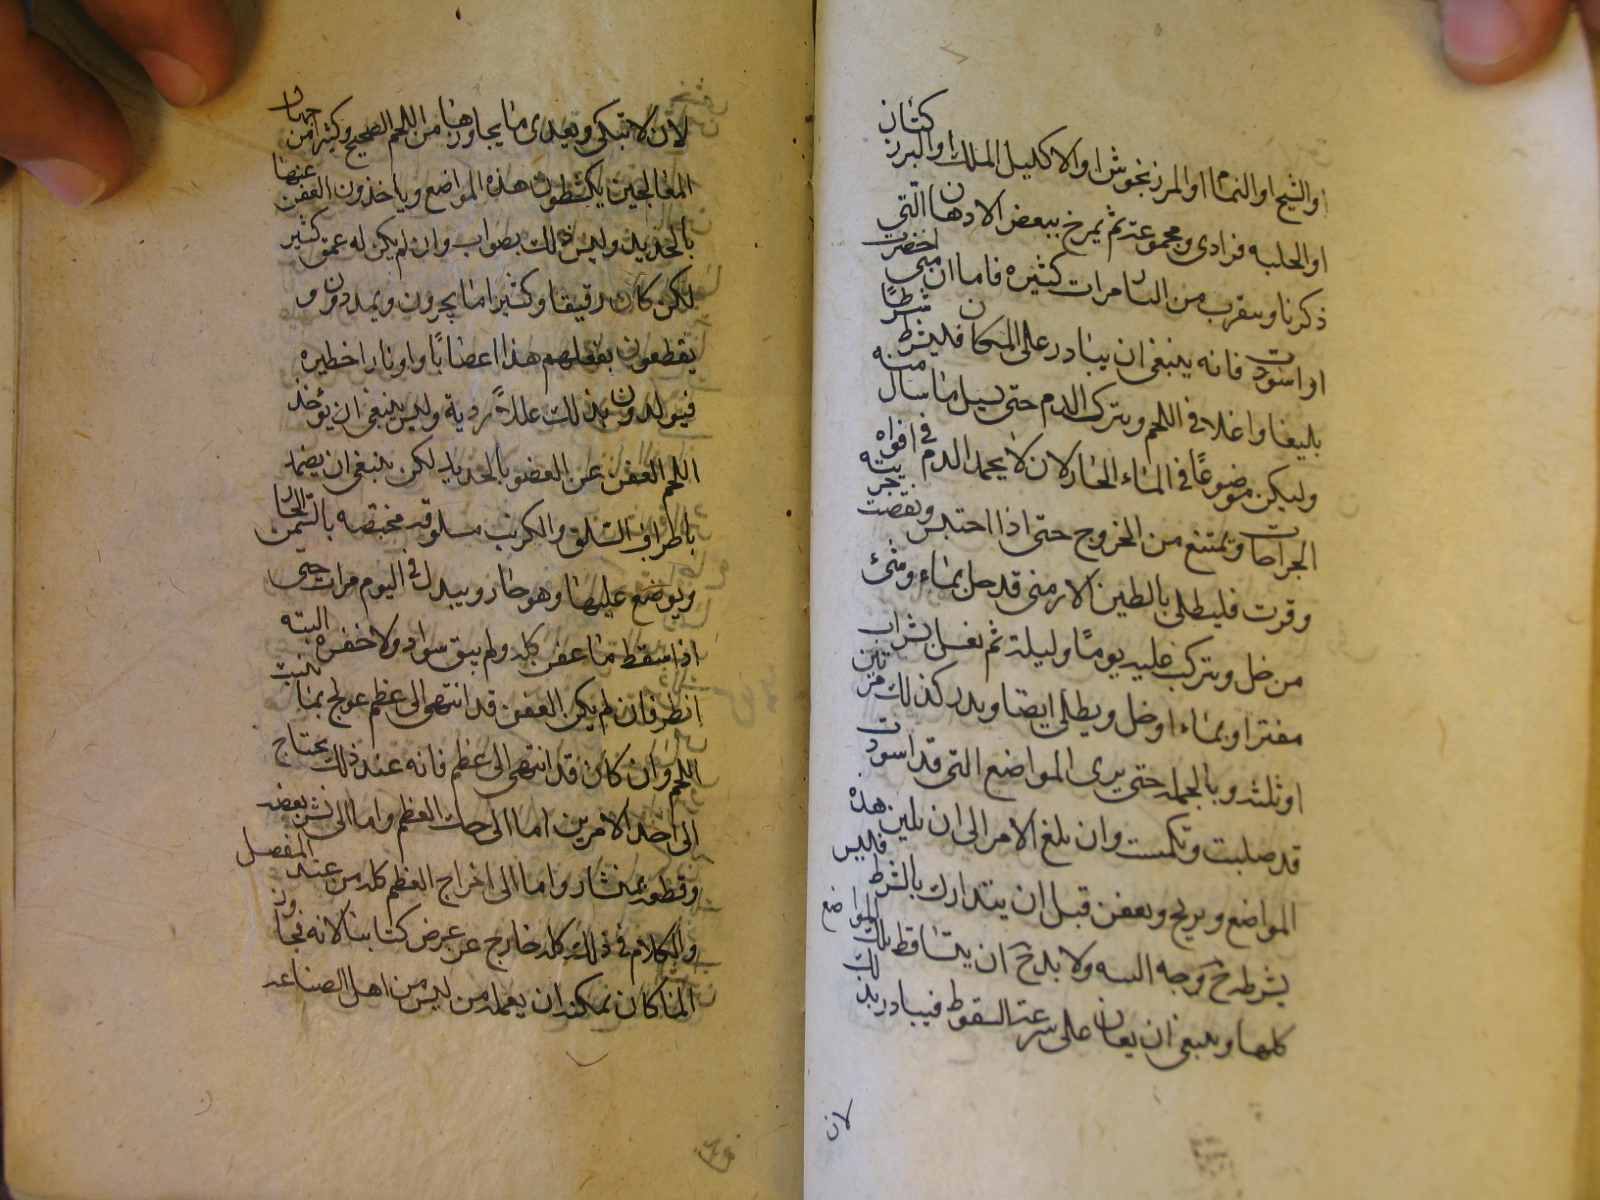 او الشيح او النمام او المرزنجوش او الاكليل الملك او البزر كتان
او الحلبه فرادى ومجموعة ثم يمرخ ببعض الادهان التى
ذكرنا ويقرب من النار مرات كثيره فاما ان متى اخضرت
او اسودت فانه ينبغى ان يبادر على المكان فليشرط شرطًا
بليغا واغلا فى اللحم ويترك الدم حتى يسيل ما سال منه
وليكن موضوعًا فى الماء الحار لان لا يجمد الدم فى افواه
الجراحات ويمتنع من الخروج حتى اذا احتبس ونقصت
وقرت فليطلى بالطين الارمنى قد حل بماء وشئ
من خل ويترك عليه يومًا وليلة ثم يغسل بشراب
مفتر او بماء او خل ويطلى ايضا ويدر كذلك مرتين
او ثلثه وبالجمله حتى يرى المواضع التى قد اسودت
قد صلبت وتكمست وان بلغ الامر الى ان يلين هذه
المواضع ويريح ويعفن قبل ان يتدارك بالشرط فليس
بشرطه ح وجه البته ولا بد ح ان يتساقط تلك المواضع
كلها وينبغى ان يعان على سرعة السقوط فيبادر بذلك
لان
لان لا تبكى ويعدى ما يجاورها من اللحم الصحيح وكثيرا من جهال
المعالجين يكشطون هذه المواضع وياخذون العفن عنها
بالحديد وليس ذلك بصواب وان لم يكن له عمق كثير
لكن كان رقيقا وكثيرا ما يجرون ويمددون و
يقطعون بفعلهم هذا اعصابًا واوتارا خطيره
فيولدون بذلك عللا ردية وليس ينبغى ان يؤخذ
اللحم العفن عن العضو بالحديد لكن ينبغى ان يضمد
باطراف السلق والكرنب مسلوقه مخبصه بالسمن الحار
ويوضع عليها وهو حار ويبدل فى اليوم مرات حتى
اذا سقط ما عفن كله ولم يبق سواد ولا خضره البته
انظر فان لم يكن العفن قد انتهى الى عظم عولج بما ينبت
اللحم وان كان قد انتهى الى عظم فانه عند ذلك يحتاج
الى احد الامرين اما الى حك العظم واما الى نشر بعضه
وقطعه بمنشار واما الى اخراج العظم كله من عند المفصل
والكلام فى ذلك كله خارج عن عرض كتابنا لانه نجاوز
المنا كان يمكنه ان يعمله من ليس من اهل الصناعه